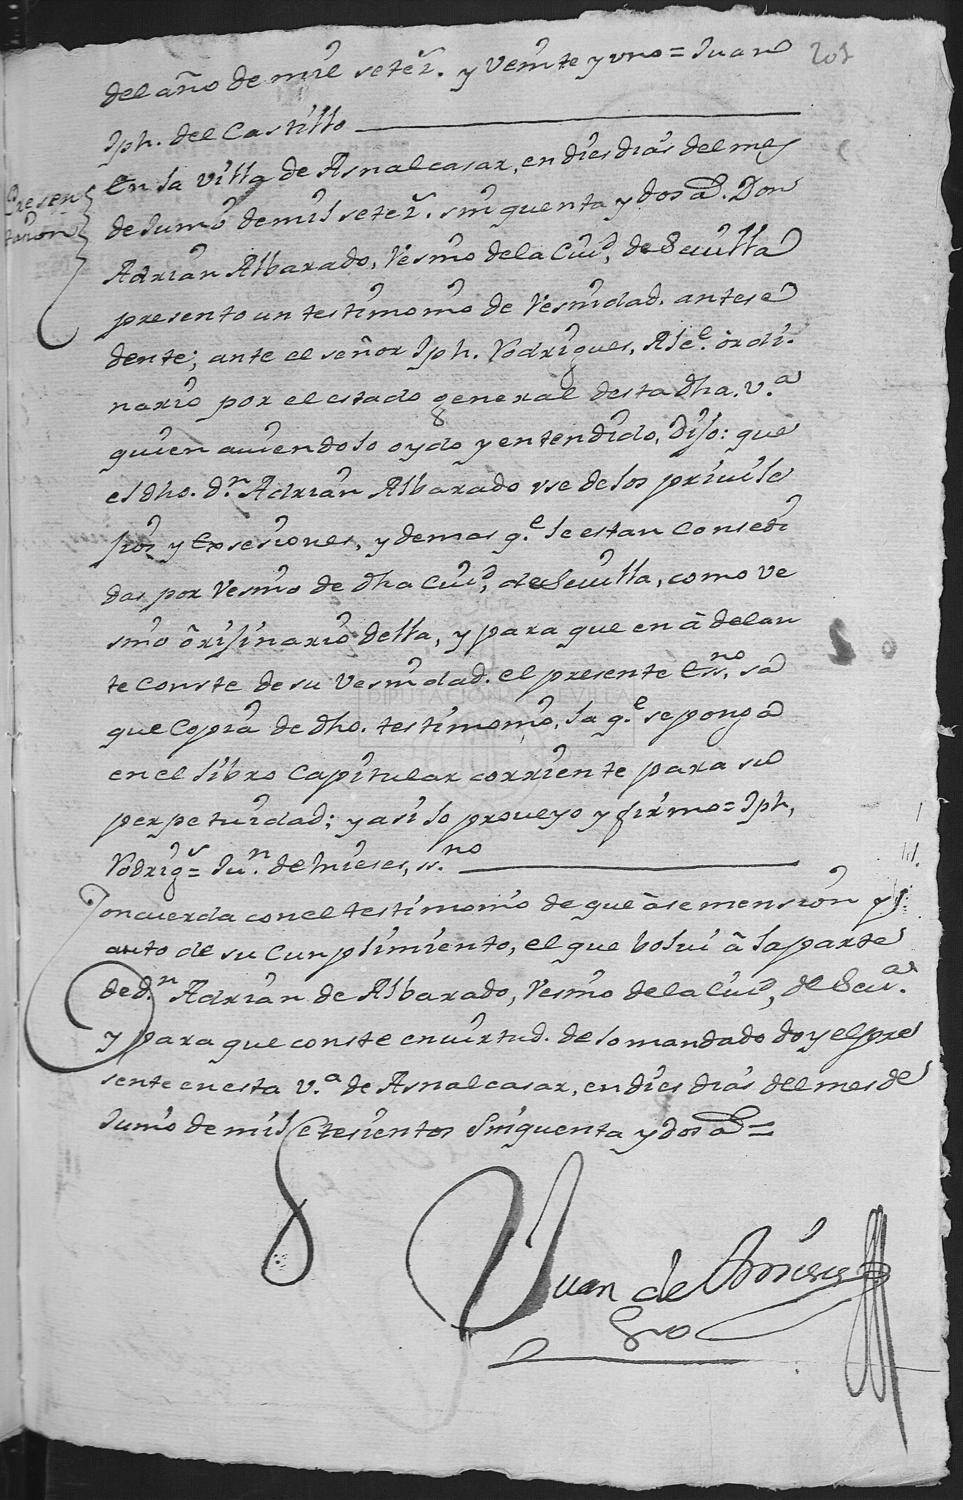 201
del año de mil setez.s y Veinte y uno = Juan
Jph. del Castillo
Presen
tacion
En la villa de Asnalcasar, en dies dias del mes
de Junio de mil setez.s sinquenta y dos a.s Don
Adrian Albarado, Vesino de la Ciu.d de Sevilla
presento un testimonio de Vesindad. antese
dente; ante el señor Jph. Rodrigues, Alc.e ordi-
nario por el estado general desta dha. v.a
quien aviendolo oydo y entendido, Dijo: que
el dho. d.n Adrian Albarado use de los privile
jios y Exsesiones, y demas q.e le estan Consedi
das por Vesino de dha Ciu.d de Sevilla, como ve
sino orijinario della, y para que en adelan
te Conste de su Vesindad. el presente Ess.no sa
que Copia de dho. testimonio, la q.e se ponga
en el libro Capitular corriente para su
perpetuidad; y asi lo proveyo y firmo = Jph,
Rodrig.s = Ju.n de Mieses, ss.no
Concuerda con el testimonio de que ase mension y
auto de su Cunplimiento, el que bolvi a la parte
de d.n Adrian de Albarado, Vesino de la Ciu.d de Sev.a
y para que conste en virtud. de lo mandado doy el pre
sente en esta v.a de Asnalcasar, en dies dias del mes de
Junio de mil setesientos sinquenta y dos a.s =
Juan de Mieses
ssno
DIPUTACION DE SEVILLA